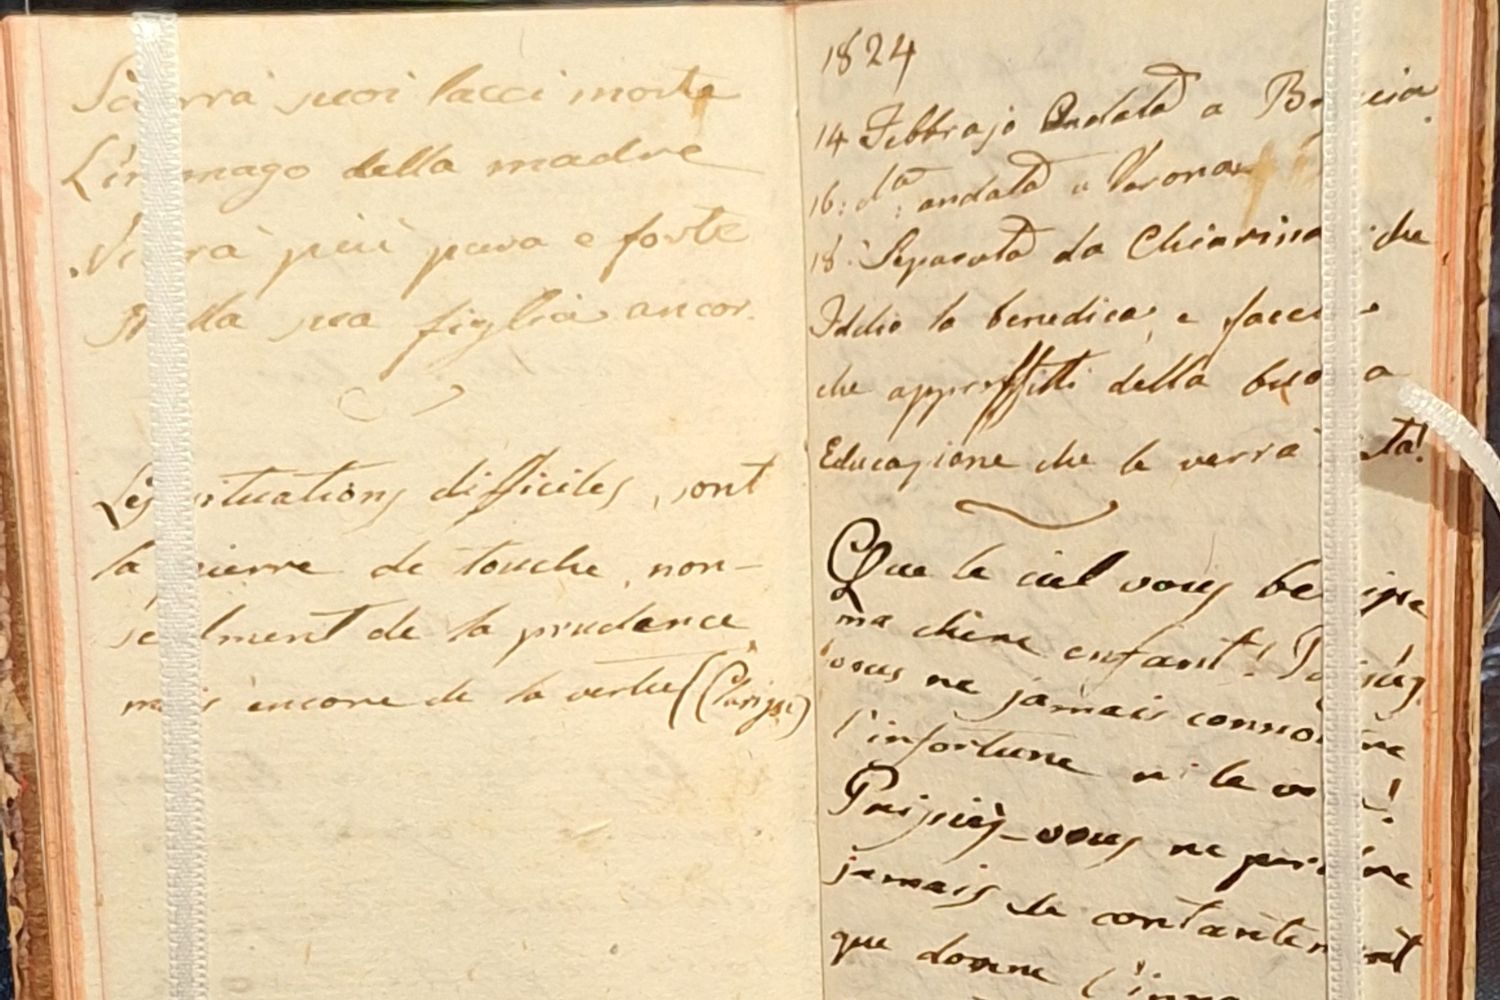 suoi lacci morte
della madre
più pura e forte
sua figlia ancor.
Les situations difficiles, sont
la pierre de touche, non-
seulment de la prudence
mais encore de la vertu (Clarisse)
1824
14 Febbrajo Andata a Brescia
16: da: andata a Verona
18: Separata da Chiarina che
Iddio la benedica, e faccia
che approffitti della buona
Educazione che le verrà data!
Que le ciel vous benisse
ma chère enfant! Puissiez
vous ne jamais connoitre
l'infortune ni le !
Puissiez-vous ne perdre
jamais le contantement
que donne